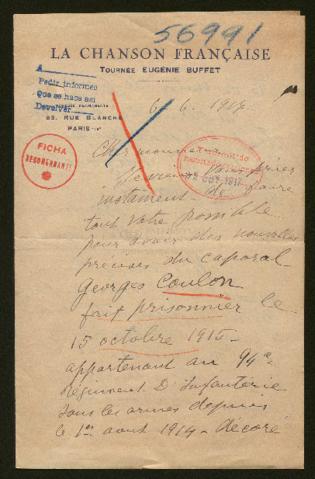 56991
LA CHANSON FRANÇAISE
TOURNÉE EUGÉNIE BUFFET
A
Pedir informes
Que se haga asi
Devolver
83, RUE BLANCHE
PARIS
6. 6. 1917
FICHA
Cher monsieur
Je viens vous prier
instament de faire
tout votre possible
pour avoir des nouvelles
précises du caporal
Georges Coulon
fait prisonnier le
15 octobre 1915 -
appartenant au 94e
Régiment D'Infanterie
sous les armes depuis
le 1er aout 1914 - décoré